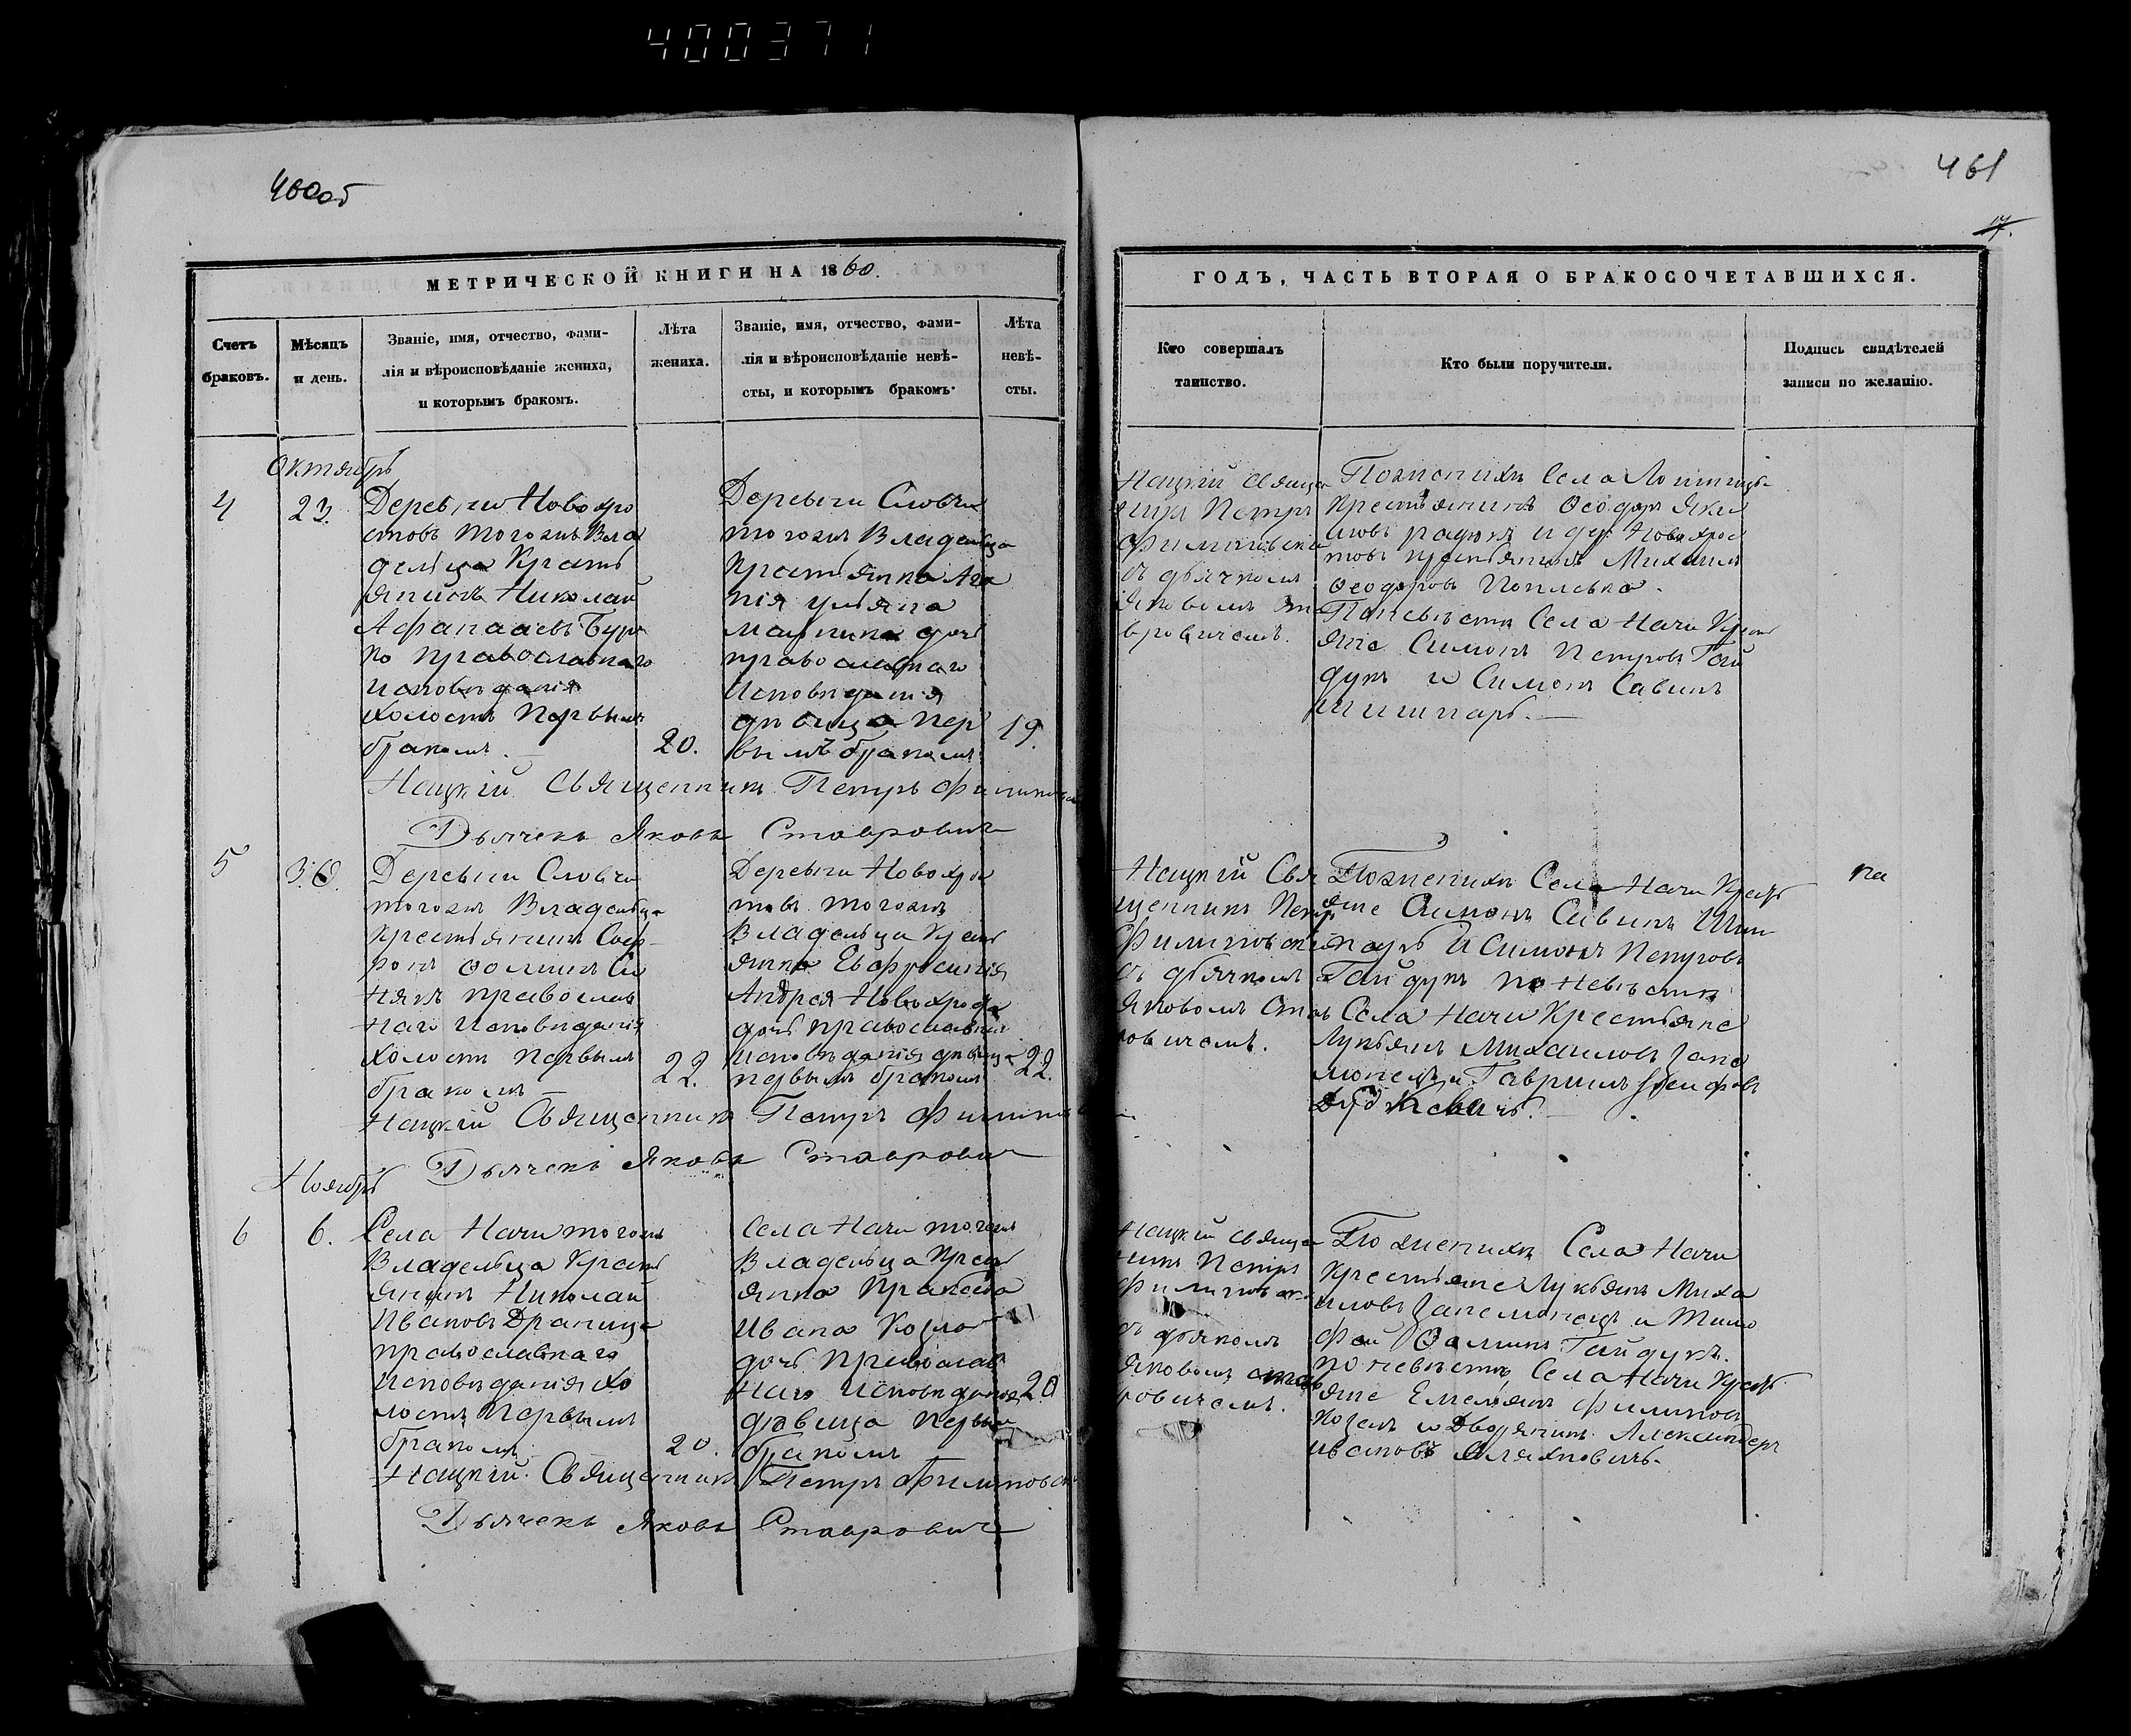 400371
460об
461
17.
МЕТРИЧЕСКОЙ КНИГИ НА 1860.
ГОДЪ, ЧАСТЬ ВТОРАЯ О БРАКОСОЧЕТАВШИХСЯ.
Счетъ
браковъ.
Мѣсяцъ
и день.
Званіе, имя, отчество, фами-
лія и вѣроисповѣданіе жениха,
и которымъ бракомъ.
Лѣта
жениха.
Званіе, имя, отчество, фами-
лія и вѣроисповѣданіе невѣ-
сты, и которымъ бракомъ.
Лѣта
невѣ-
сты.
Кто совершалъ
таинство.
Кто были поручители.
Подпись свидѣтелей
записи по желанію.
Октябрь
4
23.
Деревни Новохро
стовъ тогожъ Вла
дельца Крестъ
янинъ Николай
православнаго
исповѣданія
холостъ первымъ
бракомъ.
20.
Деревни Словчи
тогожъ Владельца
Крестьянка Ага
пія Ульяна
дочь
православнаго
исповѣданія
дѣвица пер
вымъ бракомъ
19.
Нацкій свяще
Петръ
съ дьячкомъ
Яковомъ Ста
вровичемъ.
По женихѣ Села
Крестьянинъ Ѳеодоръ Яки
мовъ и дер. Новохрос
товъ крестьянинъ Михаилъ
Ѳеодоровъ
По невѣстѣ Села Начи Крест
яне Симонъ Петровъ Гай
дукъ и Симонъ Савинъ
Нацкій Священникъ Петръ
Дьячекъ Яковъ Ставровичъ
5
30.
Деревни Словчи
тогожъ Владельца
Крестьянинъ Соф
ронъ Ѳоминъ
православ
наго исповѣданія
холостъ первымъ
бракомъ
22.
Деревни Новохрос
товъ тогожъ
Владельца Крест
янка Евфросинія
Андрея
дочь православна
исповѣданія дѣвица
первымъ бракомъ
22.
Нацкій Свя
щенникъ Петръ
съ дьячкомъ
Яковомъ Став
ровичемъ.
По женихѣ Села Начи Крест
яне Симонъ Савинъ
и Симонъ Петровъ
Гайдукъ по невѣстѣ
Села Начи Крестьяне
Лукьянъ Михаиловъ
и Гавриилъ
на
Нацкій Священникъ Петръ
Дьячекъ Яковъ Ставровичъ
Ноябрь
6
6.
Села Начи тогожъ
Владельца Крест
янинъ Николай
Ивановъ
православнаго
исповѣданія хо
лостъ первымъ
бракомъ
20.
Села Начи тогожъ
Владельца Крест
янка
Ивана Козла
дочь православ
наго исповѣданія
дѣвица первым
бракомъ
20
Нацкій священ
никъ Петръ
съ дьячкомъ
Яковомъ Став
ровичемъ.
По женихѣ Села Начи
Крестьяне Лукьянъ Миха
иловъ и Тимо
фей Ѳоминъ Гайдукъ.
по невѣстѣ Села Начи Крест
яне Емельянъ Филиповъ
Козелъ и Дворянинъ Александеръ
Ивановъ
Нацкій Священникъ Петръ
Дьячекъ Яковъ Ставровичъ